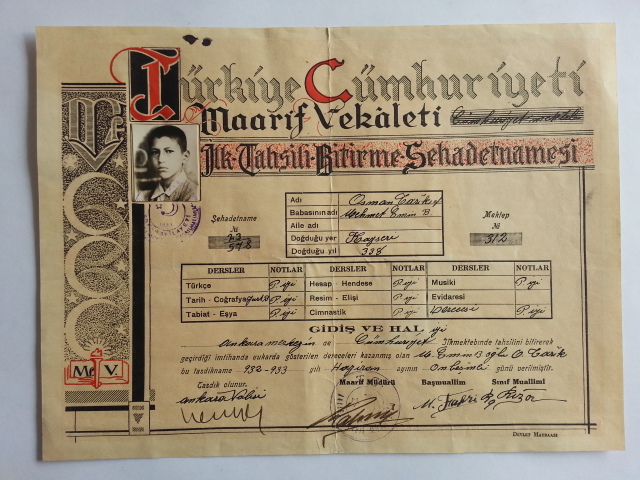 Türkiye Cümhuriyeti
Maarif Vekâleti Cümhuriyet mektebi
İlk-Tahsili-Bitirme-Şehadetnamesi
Şehadetname
№
23
578
Adı Osman Tarik ef
Babasının adı Mehmet Emin B.
Aile adı
Doğduğu yer Kayseri
Doğduğu yıl 338
Mektep
№
312
DERSLER NOTLAR DERSLER NOTLAR DERSLER NOTLAR
Türkçe P. iyi Hesap - Hendese P. iyi Musiki P. iyi
Tarih - Coğrafya P. iyi Resim - Elişi P. iyi Evidaresi
Tabiat - Eşya P. iyi Cimnastik P. iyi Derecesi P. iyi
GİDİŞ VE HAL iyi
ankara merkezin de Cümhuriyet İlkmektebinde tahsilini bitirerek
geçirdiği imtihanda yukarda gösterilen dereceleri kazanmış olan M. Emin B Oğlu O. Tarik
bu tasdikname 932-933 yılı Haziran ayının Onbeşinci günü verilmiştir.
Tasdik olunur. Maarif Müdürü Başmuallim Sınıf Muallimi
ankara Valisi
M. V.
DEVLET MATBAASI